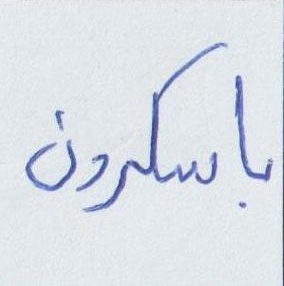 باسكرون